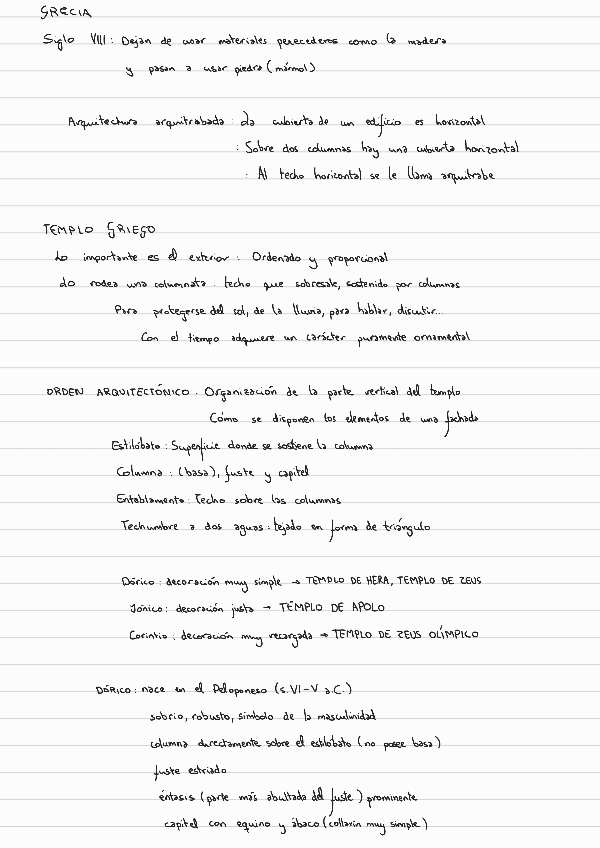 GRECIA
Siglo VIII: Dejan de usar materiales perecederos como la madera
y pasan a usar piedra (mármol)
Arquitectura arquitrabada: La cubierta de un edificio es horizontal
: Sobre dos columnas hay una cubierta horizontal
: Al techo horizontal se le llama arquitrabe
TEMPLO GRIEGO
Lo importante es el exterior: Ordenado y proporcional
Lo rodea una columnata: techo que sobresale, sostenido por columnas
Para protegerse del sol, de la lluvia, para hablar, discutir...
Con el tiempo adquiere un carácter puramente ornamental
ORDEN ARQUITECTÓNICO: Organización de la parte vertical del templo
Cómo se disponen los elementos de una fachada
Estilóbato: Superficie donde se sostiene la columna
Columna: (basa), fuste y capitel
Entablamento: Techo sobre las columnas
Techumbre a dos aguas: tejado en forma de triángulo
Dórico: decoración muy simple → TEMPLO DE HERA, TEMPLO DE ZEUS
Jónico: decoración justa → TEMPLO DE APOLO
Corintio: decoración muy recargada → TEMPLO DE ZEUS OLÍMPICO
DÓRICO: nace en el Peloponeso (s.VI-V a.C.)
sobrio, robusto, símbolo de la masculinidad
columna directamente sobre el estilóbato (no posee basa)
fuste estriado
éntasis (parte más abultada del fuste) prominente
capitel con equino y ábaco (collarín muy simple)